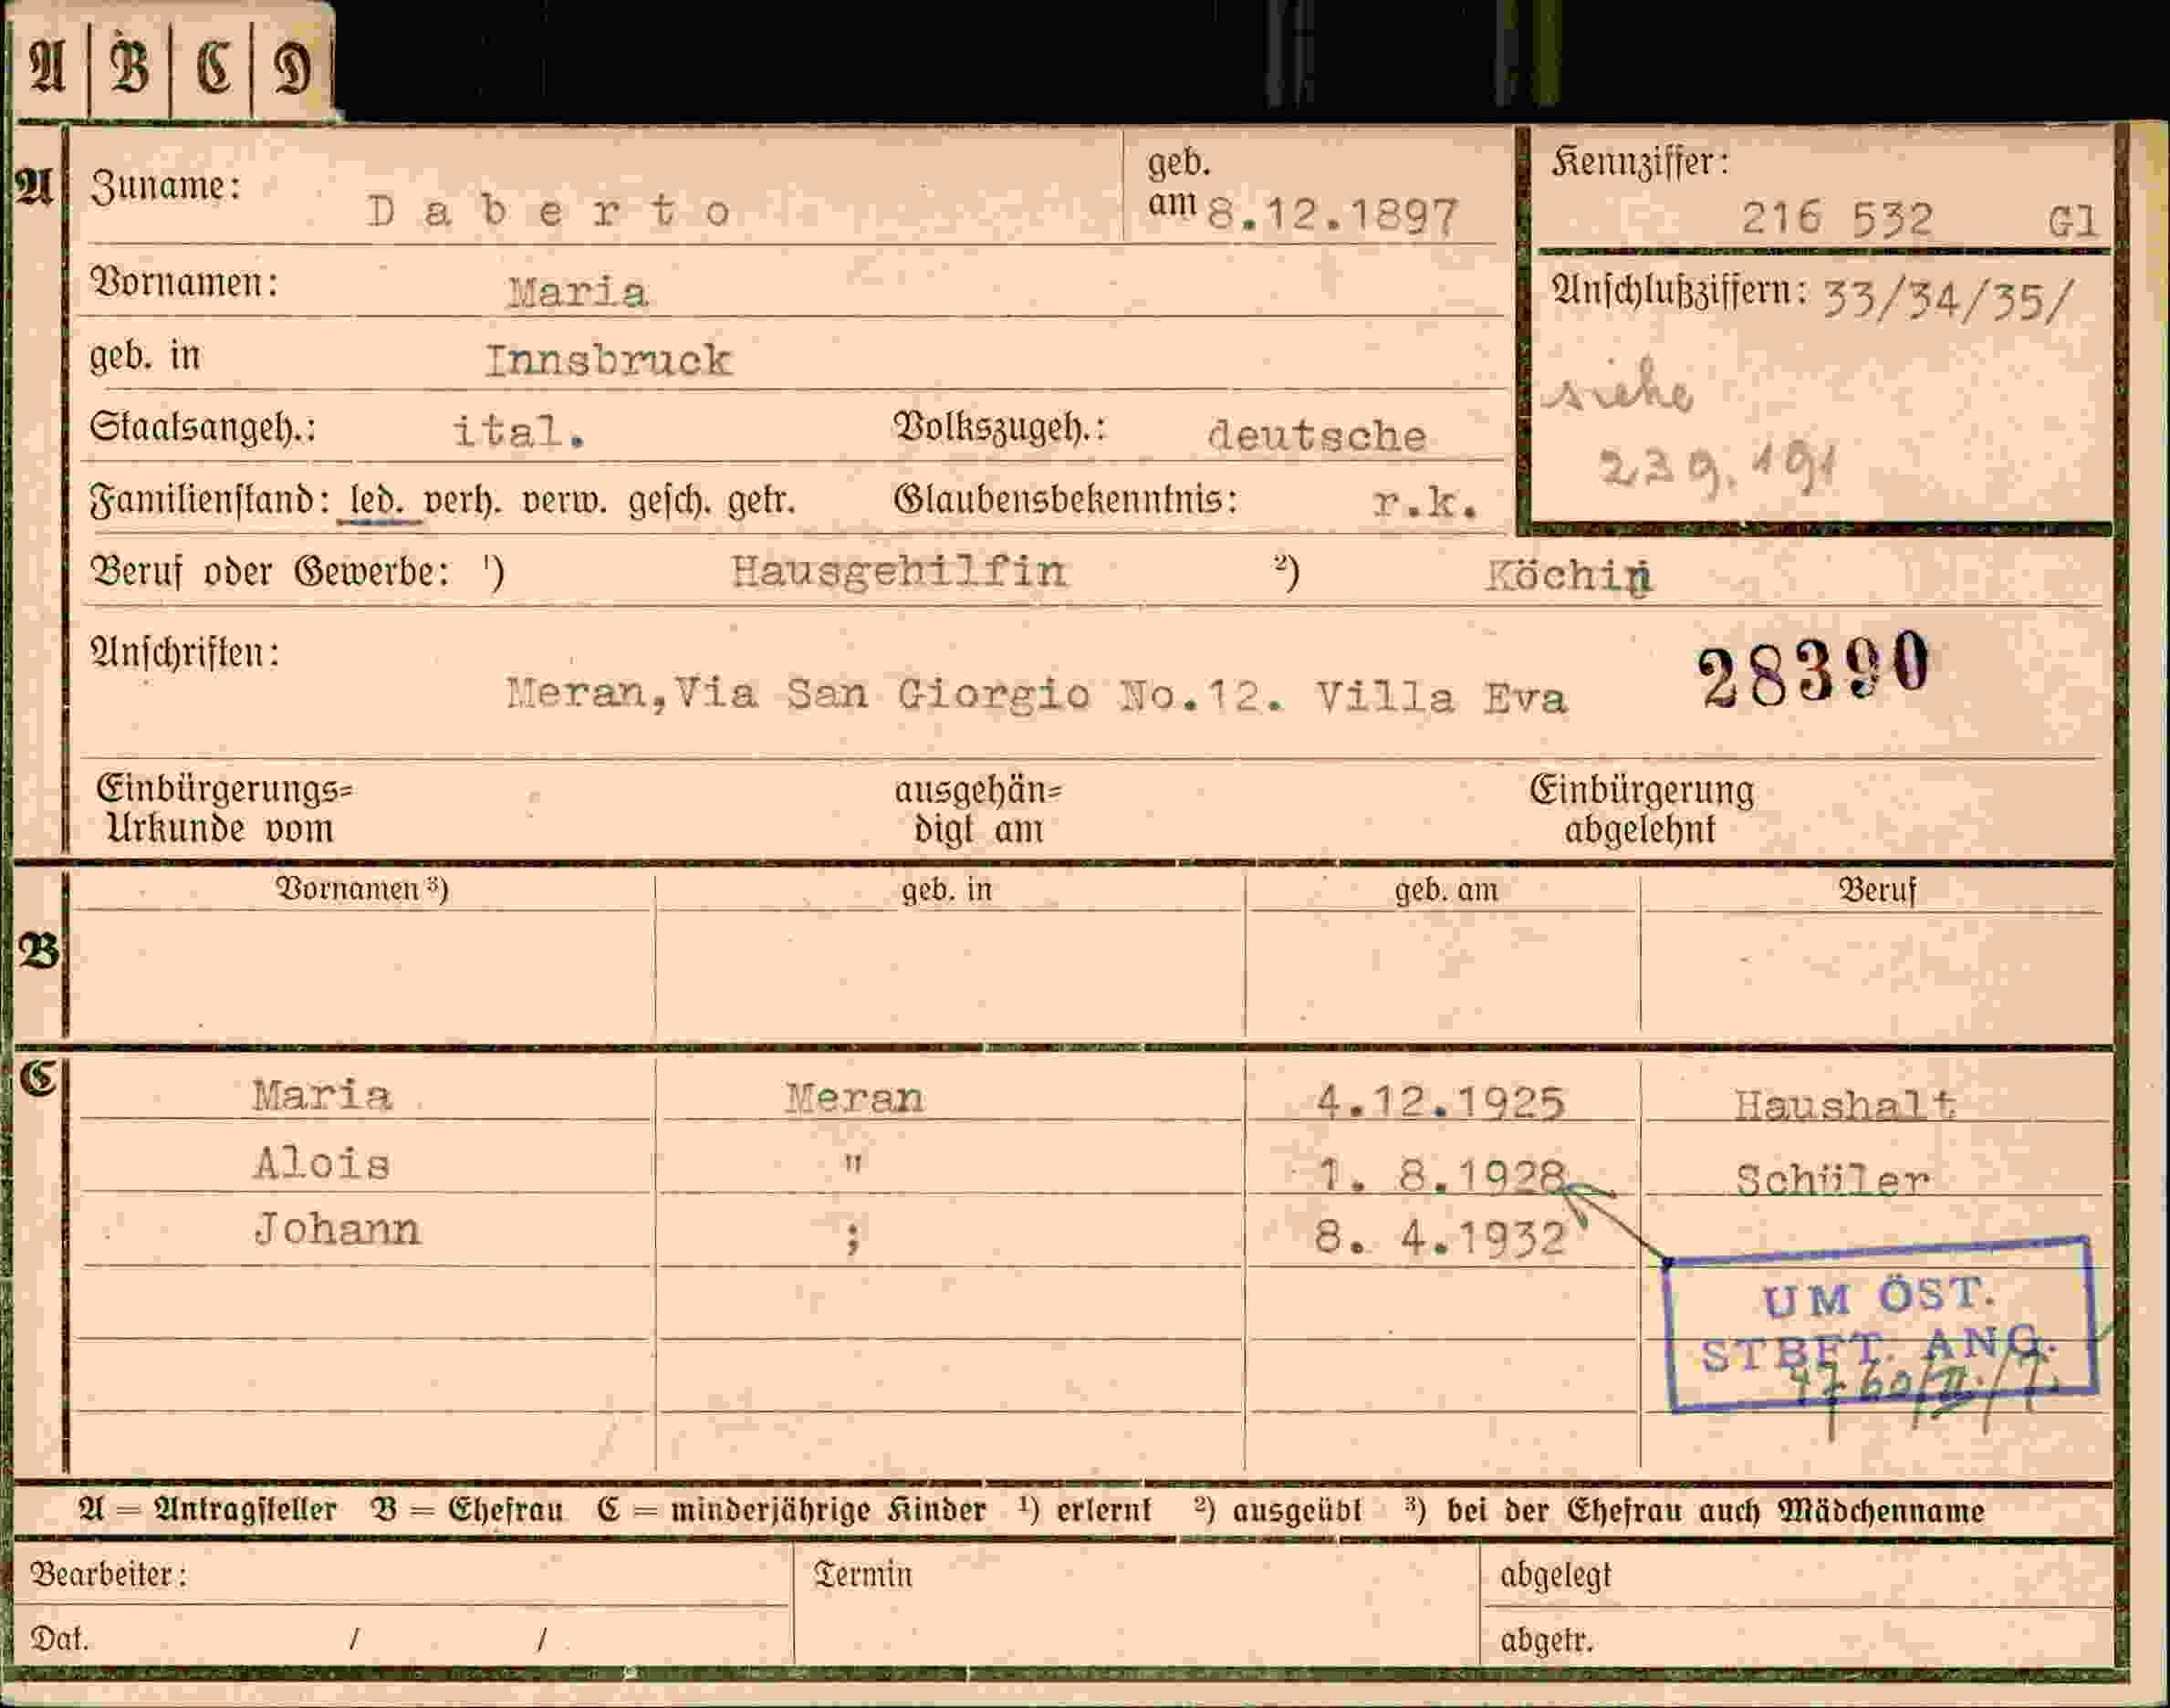 A | B | C | D
A
Zuname: Daberto
geb. am 8.12.1897
Kennziffer: 216 532 Gl
Vornamen: Maria
Anschlußziffern: 33/34/35/
siehe
239.191
geb. in Innsbruck
Staatsangeh.: ital. Volkszugeh.: deutsche
Familienstand: led. verh. verw. gesch. getr. Glaubensbekenntnis: r.k.
Beruf oder Gewerbe: ¹) Hausgehilfin ²) Köchin
Anschriften: Meran,Via San Giorgio No.12. Villa Eva
28390
Einbürgerungs=
Urkunde vom
ausgehän=
digt am
Einbürgerung
abgelehnt
Vornamen ³) geb. in geb. am Beruf
B
C
Maria Meran 4.12.1925 Haushalt
Alois " 1. 8.1928 Schüler
Johann ; 8. 4.1932
UM ÖST.
STBFT. ANG.
A = Antragsteller B = Ehefrau C = minderjährige Kinder ¹) erlernt ²) ausgeübt ³) bei der Ehefrau auch Mädchenname
Bearbeiter: Termin abgelegt
Dat. / / abgetr.